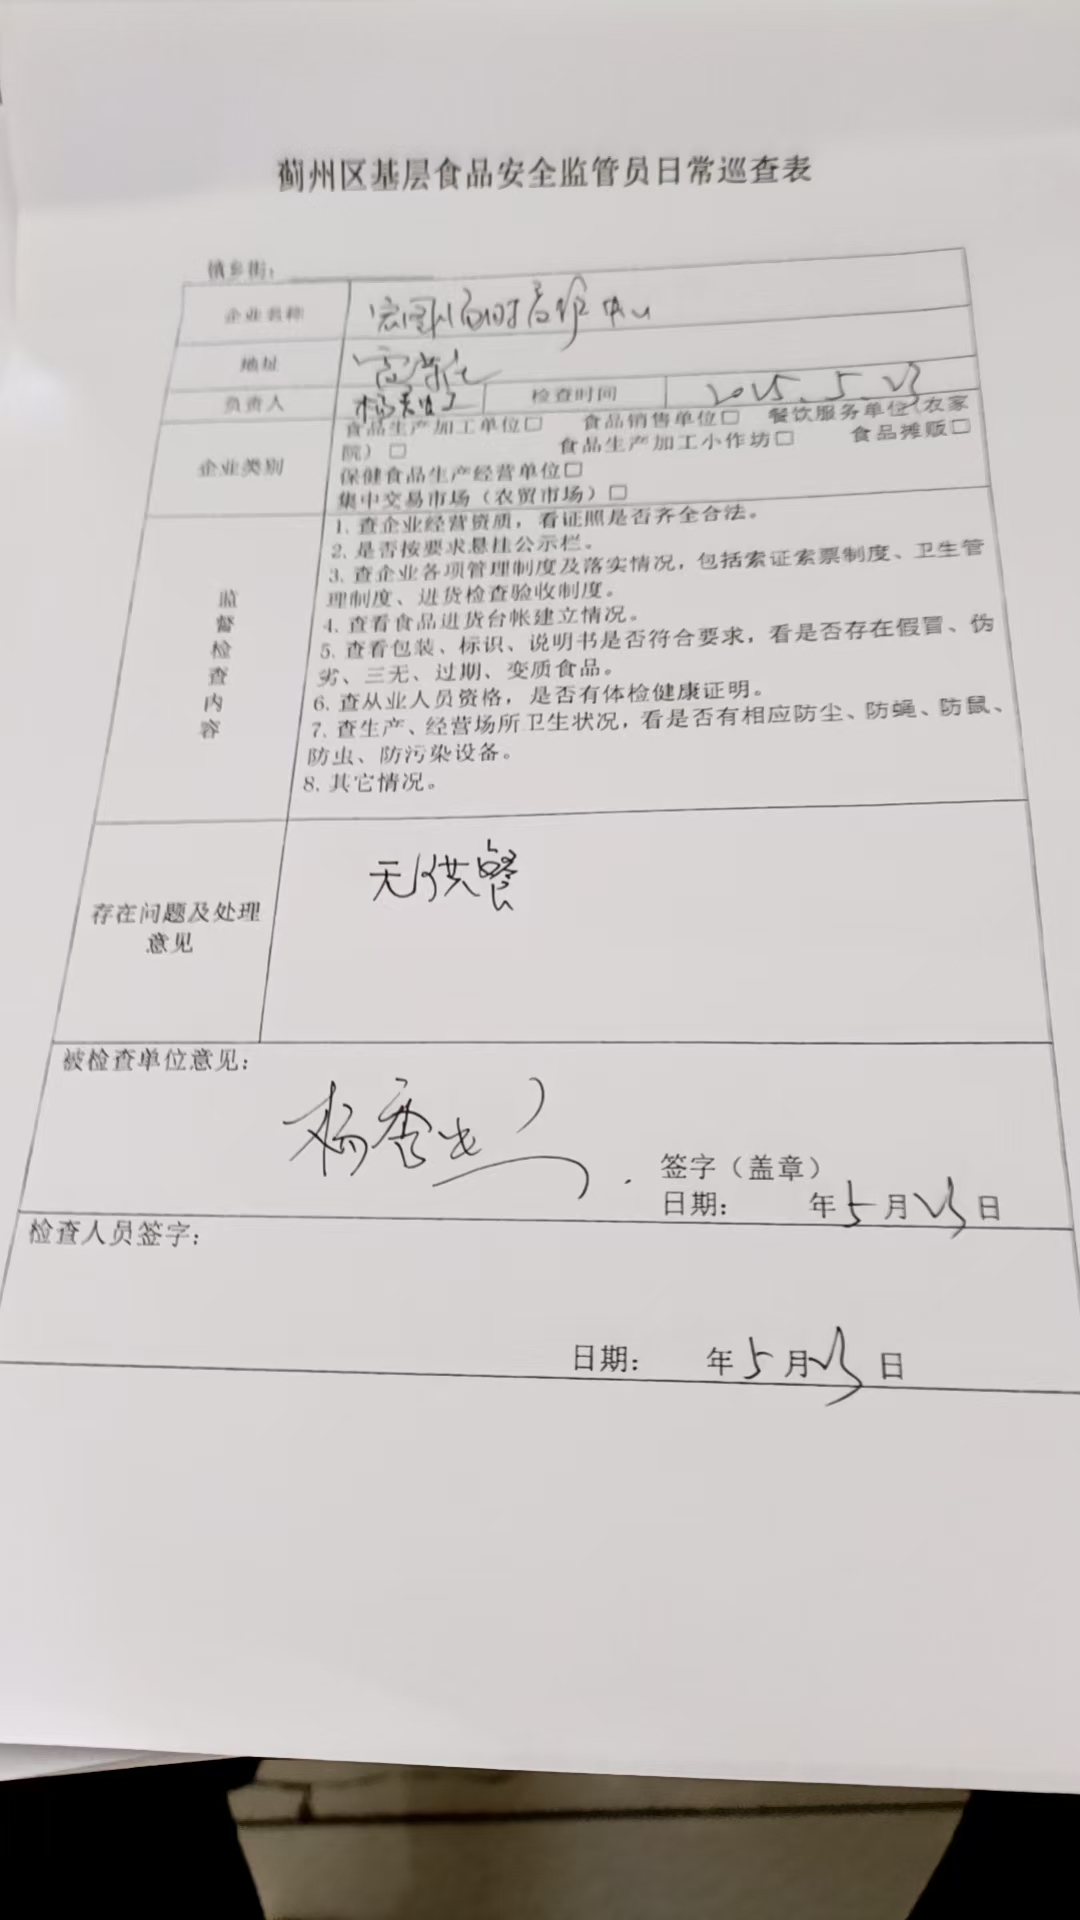 蓟州区基层食品安全监管员日常巡查表
镇乡街：
企业名称
地址
负责人 检查时间 2025.5.23
企业类别
食品生产加工单位□ 食品销售单位□ 餐饮服务单位（农家
院）□ 食品生产加工小作坊□ 食品摊贩□
保健食品生产经营单位□
集中交易市场（农贸市场）□
监督检查内容
1. 查企业经营资质，看证照是否齐全合法。
2. 是否按要求悬挂公示栏。
3. 查企业各项管理制度及落实情况，包括索证索票制度、卫生管
理制度、进货检查验收制度。
4. 查看食品进货台帐建立情况。
5. 查看包装、标识、说明书是否符合要求，看是否存在假冒、伪
劣、三无、过期、变质食品。
6. 查从业人员资格，是否有体检健康证明。
7. 查生产、经营场所卫生状况，看是否有相应防尘、防蝇、防鼠、
防虫、防污染设备。
8. 其它情况。
存在问题及处理
意见
无供餐
被检查单位意见：
签字（盖章）
日期： 年5月23日
检查人员签字：
日期： 年5月23日